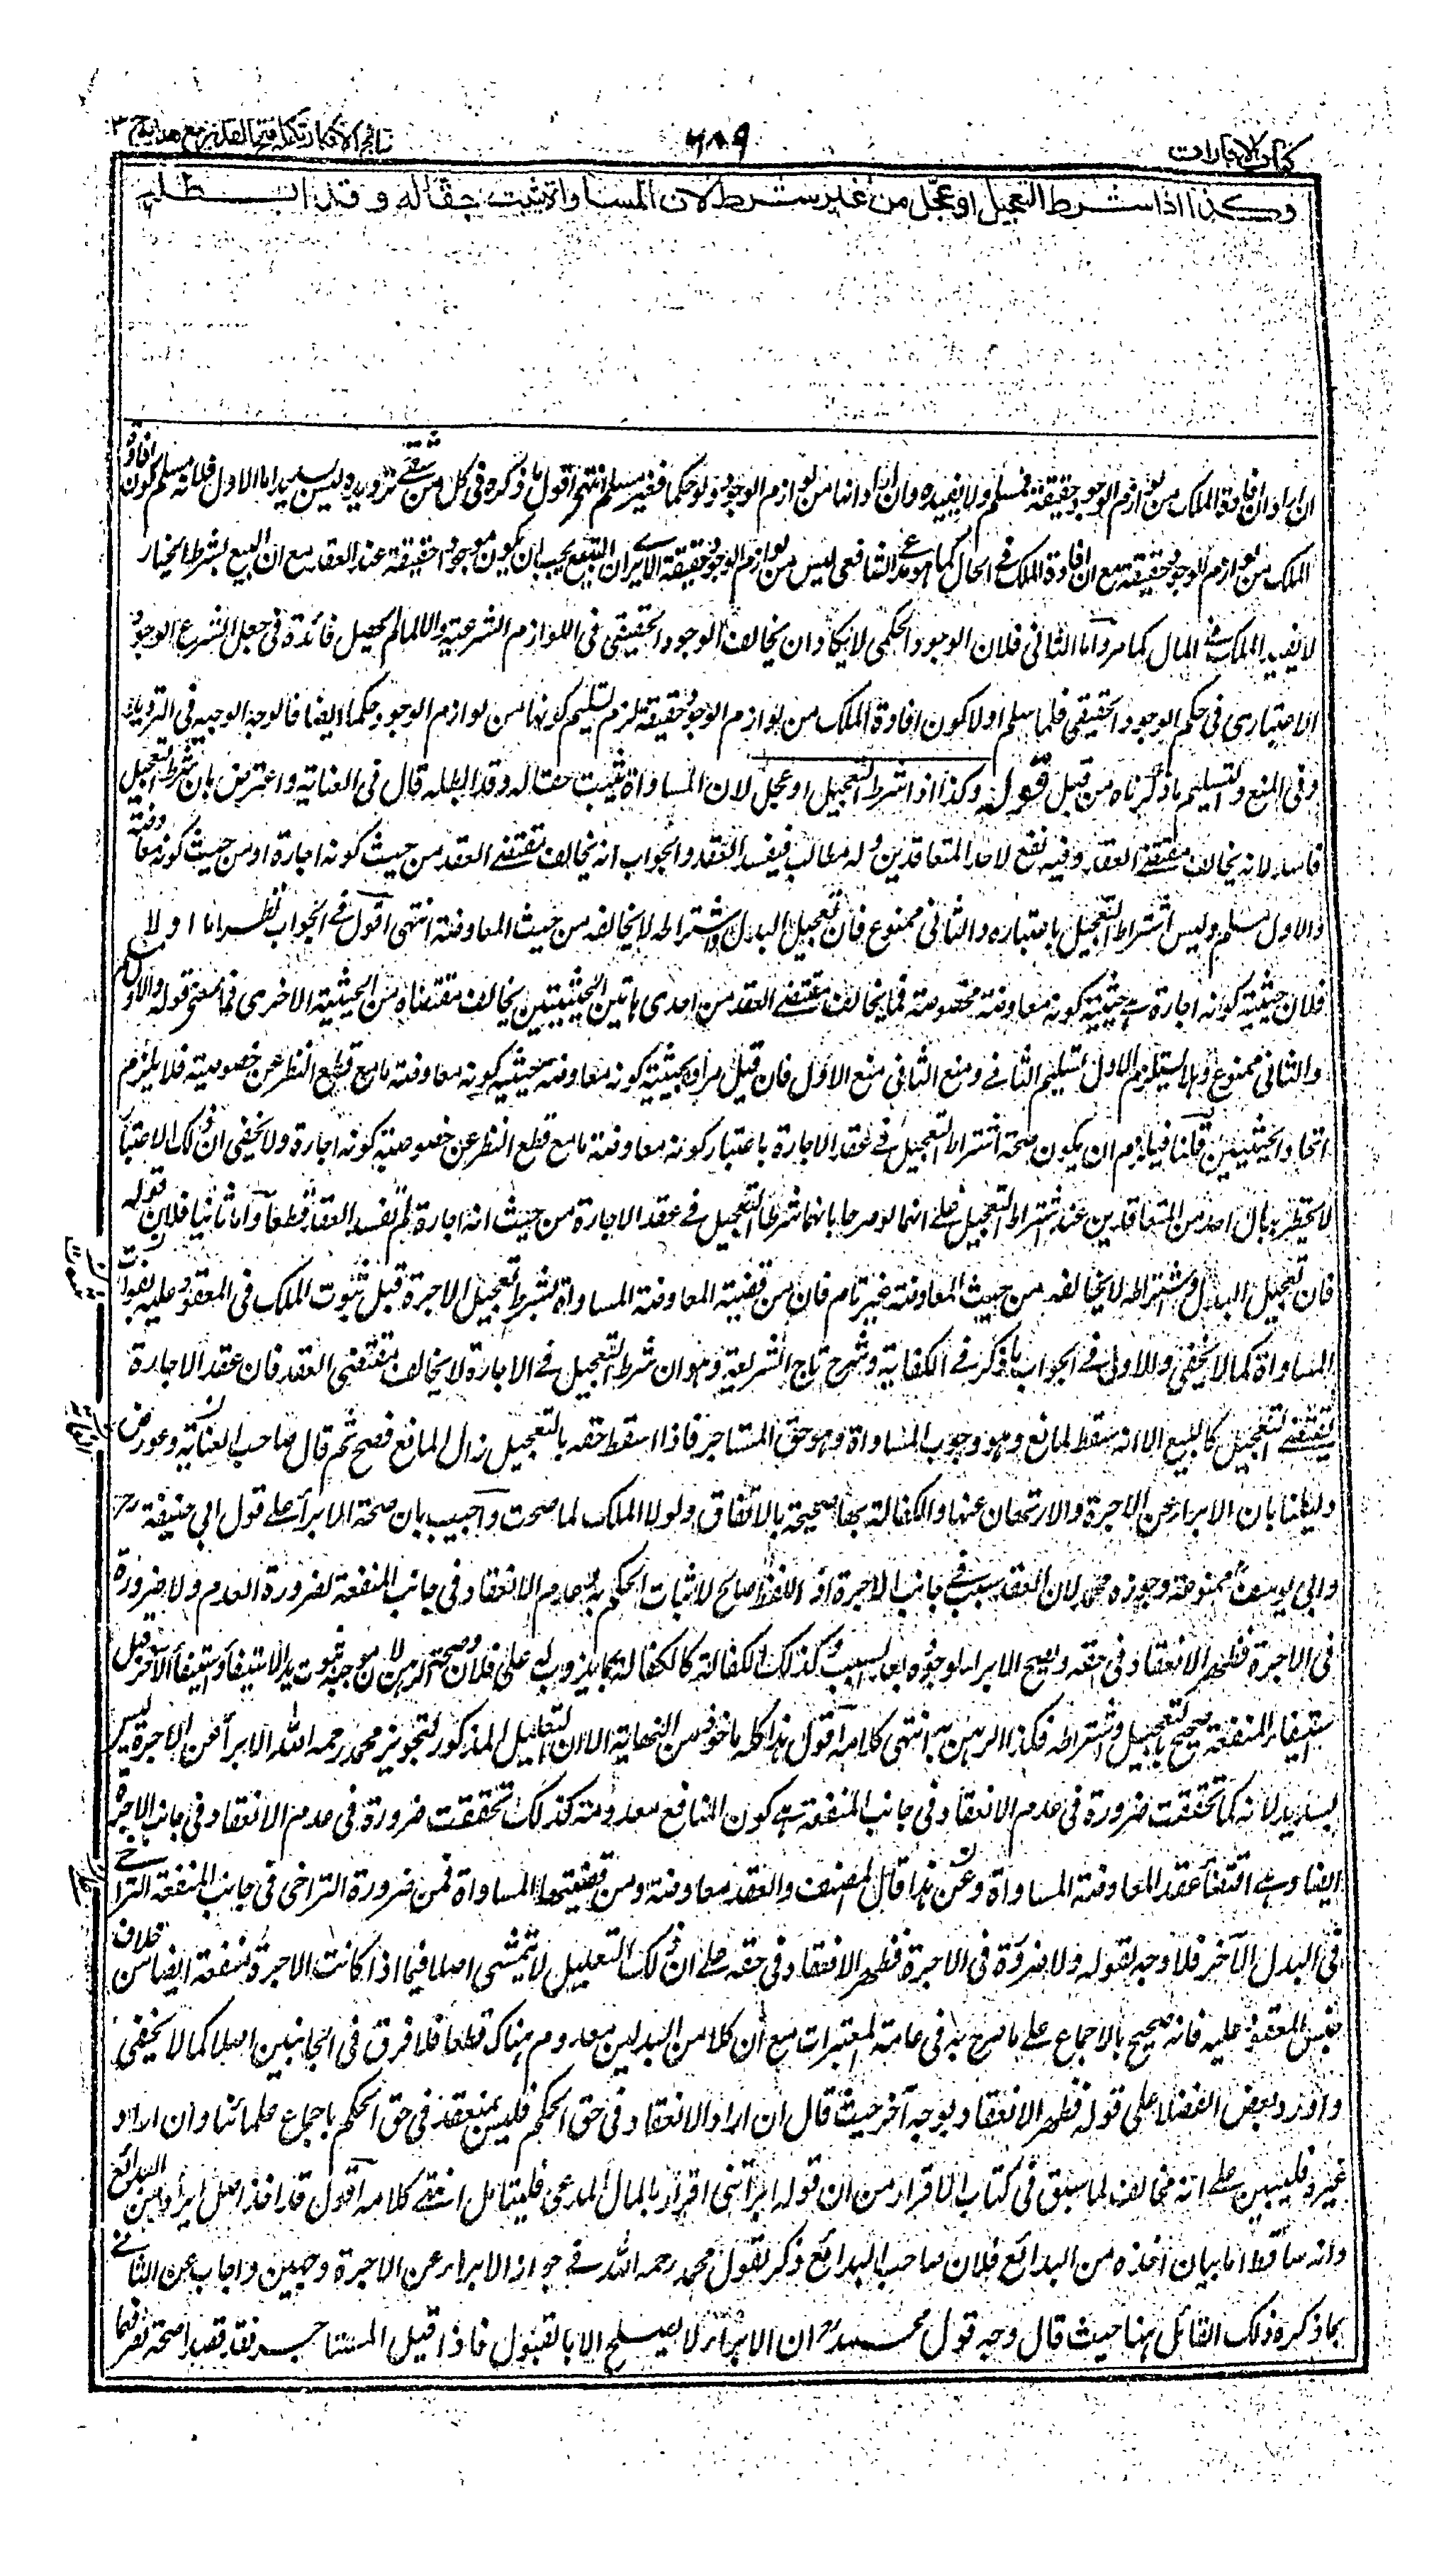 كتاب الاجارات
٦٨٩
نتائج الافكار تكملة فتح القدير مع هدايه ج ٣
وكذا اذا شرط التعجيل او عجّل من غير شرط لان المساواة يثبت حقًّا له وقد ابطله
ان اراد ان افادة الملك من لوازم الوجود حقيقة فمسلم ولا يفيده وان اراد انها من لوازم الوجود ولو حكما فغير مسلم انتهى اقول ما ذكره فى كل من شقى ترديده ليس بسديد اما الاول فلانه مسلم كون افادة
الملك من لوازم الوجود حقيقة مع ان افادة الملك فى الحال كما هو عند الشافعى ليس من لوازم الوجود حقيقة الا يرى ان المبيع يجب ان يكون موجودا حقيقة عند العقد مع ان البيع بشرط الخيار
لا يفيد الملك فى الحال كما مر واما الثانى فلان الوجود الحكمى لا يكاد ان يخالف الوجود الحقيقى فى اللوازم الشرعية والا لما لم يحصل فائدة فى جعل الشرع الوجود
الاعتبارى فى حكم الوجود الحقيقى فلما سلم اولا كون افادة الملك من لوازم الوجود حقيقة لزم تسليم كونها من لوازم الوجود حكما ايضا فالوجه الوجيه فى الترديد
وفى المنع والتسليم ما ذكرناه من قبل قوله وكذا اذا شرط التعجيل او عجل لان المساواة يثبت حقا له وقد ابطله قال فى العناية واعترض بان شرط التعجيل
فاسد لانه يخالف مقتضى العقد وفيه نفع لاحد المتعاقدين وله مطالب فيفسد العقد والجواب انه يخالف مقتضى العقد من حيث كونه اجارة او من حيث كونه معاوضة
والاول مسلم وليس اشتراط التعجيل باعتباره والثانى ممنوع فان تعجيل البدل واشتراطه لا يخالفه من حيث المعاوضة انتهى اقول فى الجواب نظر اما اولا
فلان حيثية كونه اجارة هى حيثية كونه معاوضة مخصوصة فما يخالف مقتضى العقد من احدى هاتين الحيثيتين يخالف مقتضاه من الحيثية الاخرى فما معنى قوله والاول مسلم
والثانى ممنوع وهلا يستلزم الاول تسليم الثانى ومنع الثانى منع الاول فان قيل مراده بحيثية كونه معاوضة حيثية كونه معاوضة ما مع قطع النظر عن خصوصية فلا يلزم
اتحاد الحيثيتين قلنا فيلزم ان يكون صحة اشتراط التعجيل فى عقد الاجارة باعتبار كونه معاوضة ما مع قطع النظر عن خصوصية كونه اجارة ولا يخفى ان ذلك الاعتبار
لا يخطر ببال احد من المتعاقدين عند اشتراط التعجيل على انهما لو صرحا بانهما شرطا التعجيل فى عقد الاجارة من حيث انه اجارة لم يفسد العقد قطعا واما ثانيا فلان قوله
فان تعجيل البدل واشتراطه لا يخالفه من حيث المعاوضة غير تام فان من قضية المعاوضة المساواة فبشرط تعجيل الاجرة قبل ثبوت الملك فى المعقود عليه يفوت
المساواة كما لا يخفى والاولى فى الجواب ما ذكر فى الكفاية وشرح تاج الشريعة وهو ان شرط التعجيل فى الاجارة لا يخالف مقتضى العقد فان عقد الاجارة
يقتضى التعجيل كالبيع الا انه سقط لمانع وهو وجوب المساواة وهو حق المستاجر فاذا اسقط حقه بالتعجيل زال المانع فصح ثم قال صاحب العناية وعورض
دليلنا بان الابراء عن الاجرة والارتهان عنها والكفالة بها صحيحة بالاتفاق ولولا الملك لما صحت واجيب بان صحة الابراء على قول ابى حنيفة رح
وابى يوسف ممنوعة وجوزه محمد لان العقد سبب فى جانب الاجرة اذ اللفظ صالح لاثبات الحكم به وعدم الانعقاد فى جانب المنفعة لضرورة العدم ولا ضرورة
فى الاجرة فظهر الانعقاد فى حقه ويصح الابراء لوجوده بعد السبب وكذلك الكفالة كالكفالة بما يذوب له على فلان وصحة الرهن لان موجبه ثبوت يد الاستيفاء واستيفاء الاجر قبل
استيفاء المنفعة صحيح بالتعجيل واشتراطه فكذا الرهن به انتهى كلامه اقول هذا كله ماخوذ من النهاية الا ان التعليل المذكور لتجويز محمد رحمه الله الابراء عن الاجرة ليس
بسديد لانه كما تحققت ضرورة فى عدم الانعقاد فى جانب المنفعة هى كون المنافع معدومة كذلك تحققت ضرورة فى عدم الانعقاد فى جانب الاجرة
ايضا وهى اقتضاء عقد المعاوضة المساواة وعن هذا قال المصنف والعقد معاوضة ومن قضيتها المساواة فمن ضرورة التراخى فى جانب المنفعة التراخى
فى البدل الآخر فلا وجه لقوله ولا ضرورة فى الاجرة فظهر الانعقاد فى حقه على ان ذلك التعليل لا يتمشى اصلا فيما اذا كانت الاجرة منفعة ايضا من خلاف
جنس المعقود عليه فانه صحيح بالاجماع على ما صرح به فى عامة المعتبرات مع ان كلا من البدلين معدوم هناك قطعا فلا فرق فى الجانبين اصلا كما لا يخفى
واورد بعض الفضلاء على قوله فظهر الانعقاد بوجه آخر حيث قال ان اراد الانعقاد فى حق الحكم فليس بمنعقد فى حق الحكم باجماع علمائنا وان اراد
غيره فليبين على انه مخالف لما سبق فى كتاب الاقرار من ان قوله ابرأتنى اقرار بالمال المدعى فليتامل انتهى كلامه اقول قد اخذ اصل ايراده من البدائع
وانه ساقط اما بيان اخذه من البدائع فلان صاحب البدائع ذكر لقول محمد رحمه الله فى جواز الابراء عن الاجرة وجهين واجاب عن الثانى
بما ذكره ذلك القائل هنا حيث قال وجه قول محمد رح ان الابراء لا يصلح الا بالقبول فاذا قبل المستاجر فقد قصدا صحة تصرفهما